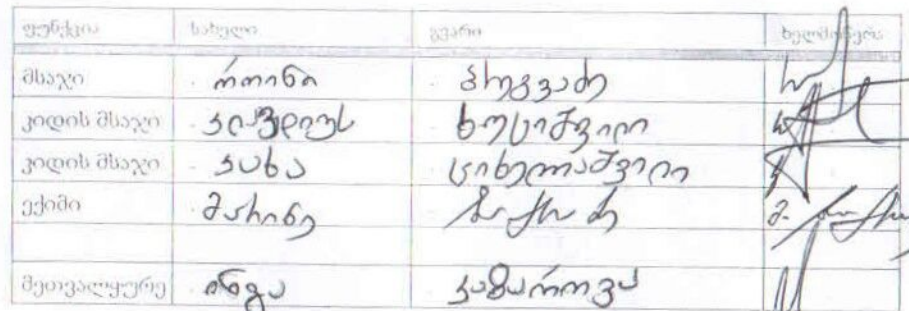 ფუნქცია სახელი გვარი ხელმოწერა
მსაჯი როინი
კიდის მსაჯი კლავდიუს ხუციშვილი
კიდის მსაჯი კახა ციხელაშვილი
ექიმი მარინე
მეთვალყურე ინგა კაზაროვა